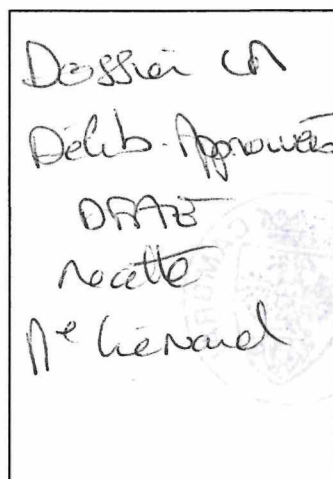 Dossier CM
Délib. Approuvées
DRAE
recette
Me Liénard